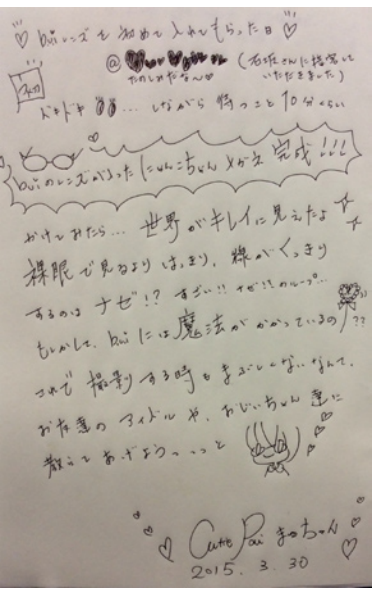 ♡ buiレンズを初めて入れてもらった日 ♡
@ (石坂さんに接客して
たのしみだな〜♡ いただきました)
ドキドキ ... しながら待つこと10分くらい
buiのレンズが入ったにゃんこちゃんメガネ完成!!!
かけてみたら... 世界がキレイに見えたよ
裸眼で見るよりはっきり、線がくっきり
するのはナゼ!? すごい!! ナゼ!? のループ...
もしかして、buiには魔法がかかっているの??
これで撮影する時もまぶしくないなんて、
お友達のアイドルや、おじいちゃん達に
教えてあげようっっっと
Cutie Pai まゆちゃん
2015. 3. 30